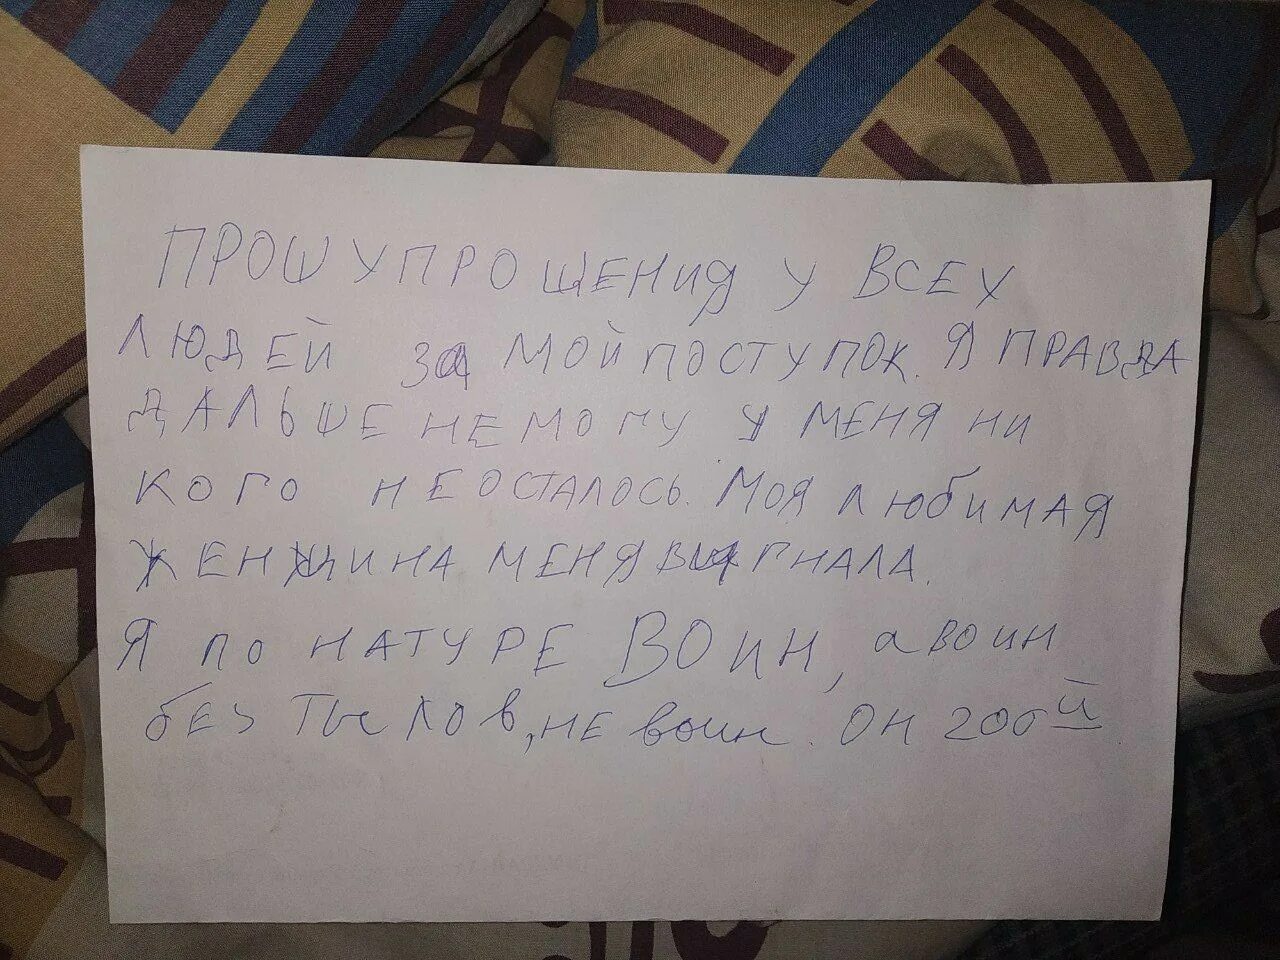 ПРОШУ ПРОЩЕНИЯ У ВСЕХ
ЛЮДЕЙ ЗА МОЙ ПОСТУПОК. Я ПРАВДА
ДАЛЬШЕ НЕ МОГУ У МЕНЯ НИ
КОГО НЕ ОСТАЛОСЬ. МОЯ ЛЮБИМАЯ
ЖЕНЩИНА МЕНЯ ВЫГНАЛА.
Я ПО НАТУРЕ ВОИН, а ВОИН
бЕЗ ТЫЛОВ, НЕ воин. ОН 200й